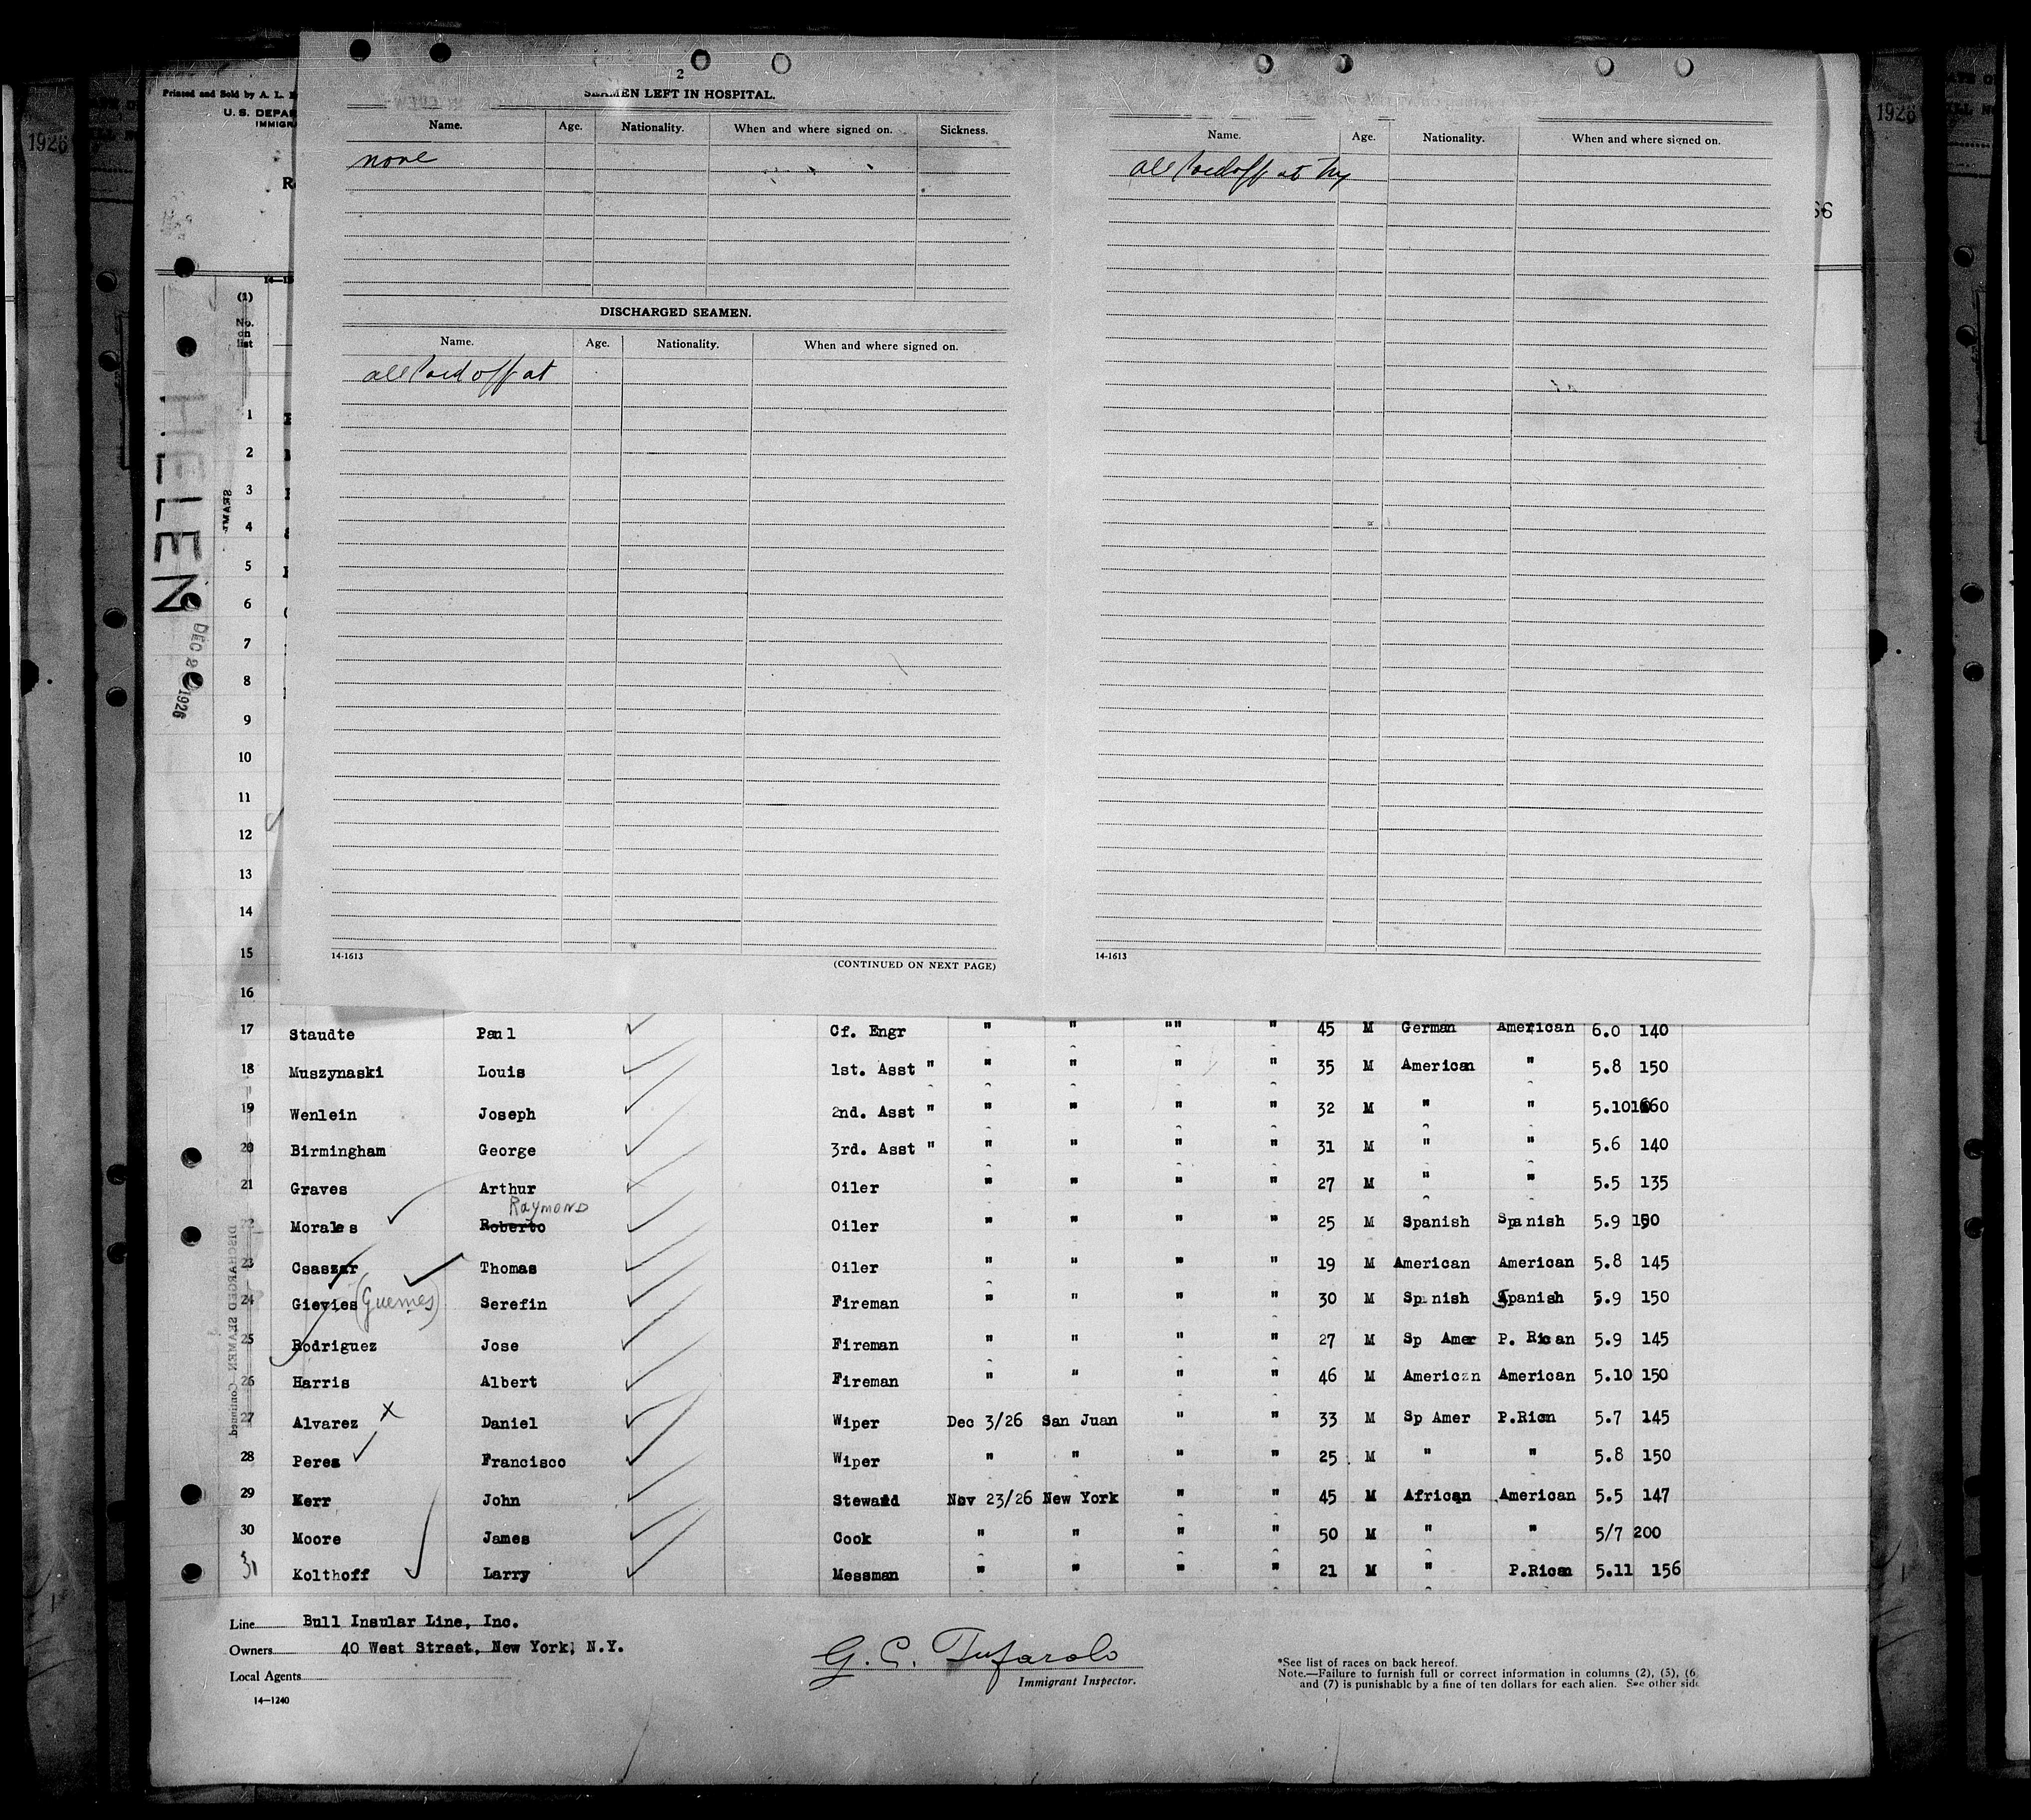 1926
Printed and Sold by A. L.
U. S. DEPA
IMMIGR
2
SEAMEN LEFT IN HOSPITAL.
Name. Age. Nationality. When and where signed on. Sickness.
none
DISCHARGED SEAMEN.
Name. Age. Nationality. When and where signed on.
all Paid off at
14-1613
(CONTINUED ON NEXT PAGE)
Name. Age. Nationality. When and where signed on.
all Paid off at Ny
14-1613
66
1926
(1)
No.
on
list
HELEN
DEC 2 1926
1
2
3
4
5
6
7
8
9
10
11
12
13
14
15
16
17 Staudte Paul Cf. Engr " " "" " 45 M German American 6.0 140
18 Muszynaski Louis 1st. Asst " " " " " 35 M American " 5.8 150
19 Wenlein Joseph 2nd. Asst " " " " " 32 M " " 5.10 160
20 Birmingham George 3rd. Asst " " " " " 31 M " " 5.6 140
21 Graves Arthur Oiler " " " " 27 M " " 5.5 135
Raymond
22 Morales Roberto Oiler " " " " 25 M Spanish Spanish 5.9 150
23 Csaszar Thomas Oiler " " " " 19 M American American 5.8 145
24 Gievies (Guemes) Serefin Fireman " " " " 30 M Sp nish Spanish 5.9 150
25 Rodriguez Jose Fireman " " " " 27 M Sp Amer P. Rican 5.9 145
26 Harris Albert Fireman " " " " 46 M American American 5.10 150
27 Alvarez X Daniel Wiper Dec 3/26 San Juan " " 33 M Sp Amer P.Rican 5.7 145
28 Peres Francisco Wiper " " " " 25 M " " 5.8 150
29 Kerr John Steward Nov 23/26 New York " " 45 M African American 5.5 147
30 Moore James Cook " " " " 50 M " " 5/7 200
31 Kolthoff Larry Messman " " " " 21 M " P.Rican 5.11 156
DISCHARGED SEAMEN—Continued.
Line Bull Insular Line, Inc.
Owners 40 West Street, New York, N.Y.
Local Agents
14—1240
G. C. Tufarolo
Immigrant Inspector.
*See list of races on back hereof.
Note.—Failure to furnish full or correct information in columns (2), (5), (6
and (7) is punishable by a fine of ten dollars for each alien. See other side